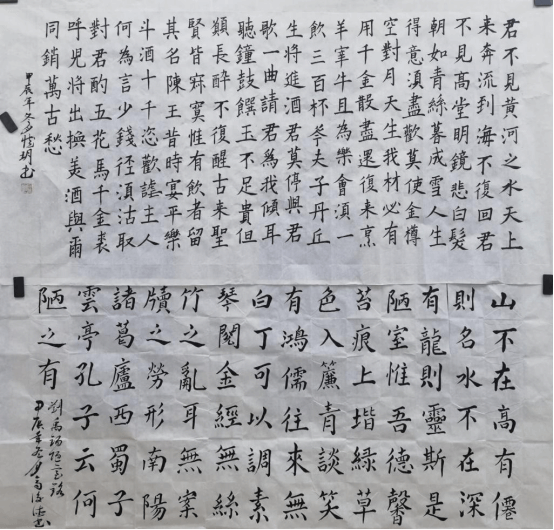 君不見黃河之水天上
來奔流到海不復回君
不見高堂明鏡悲白髮
朝如青絲暮成雪人生
得意須盡歡莫使金樽
空對月天生我材必有
用千金散盡還復來烹
羊宰牛且為樂會須一
飲三百杯岑夫子丹丘
生將進酒君莫停與君
歌一曲請君為我傾耳
聽鐘鼓饌玉不足貴但
願長醉不復醒古來聖
賢皆寂寞惟有飲者留
其名陳王昔時宴平樂
斗酒十千恣歡謔主人
何為言少錢徑須沽取
對君酌五花馬千金裘
呼兒將出換美酒與爾
同銷萬古愁
甲辰年冬
山不在高有僊
則名水不在深
有龍則靈斯是
陋室惟吾德馨
苔痕上堦綠草
色入簾青談笑
有鴻儒往來無
白丁可以調素
琴閱金經無絲
竹之亂耳無案
牘之勞形南陽
諸葛廬西蜀子
雲亭孔子云何
陋之有
劉禹錫陋室銘
甲辰年冬